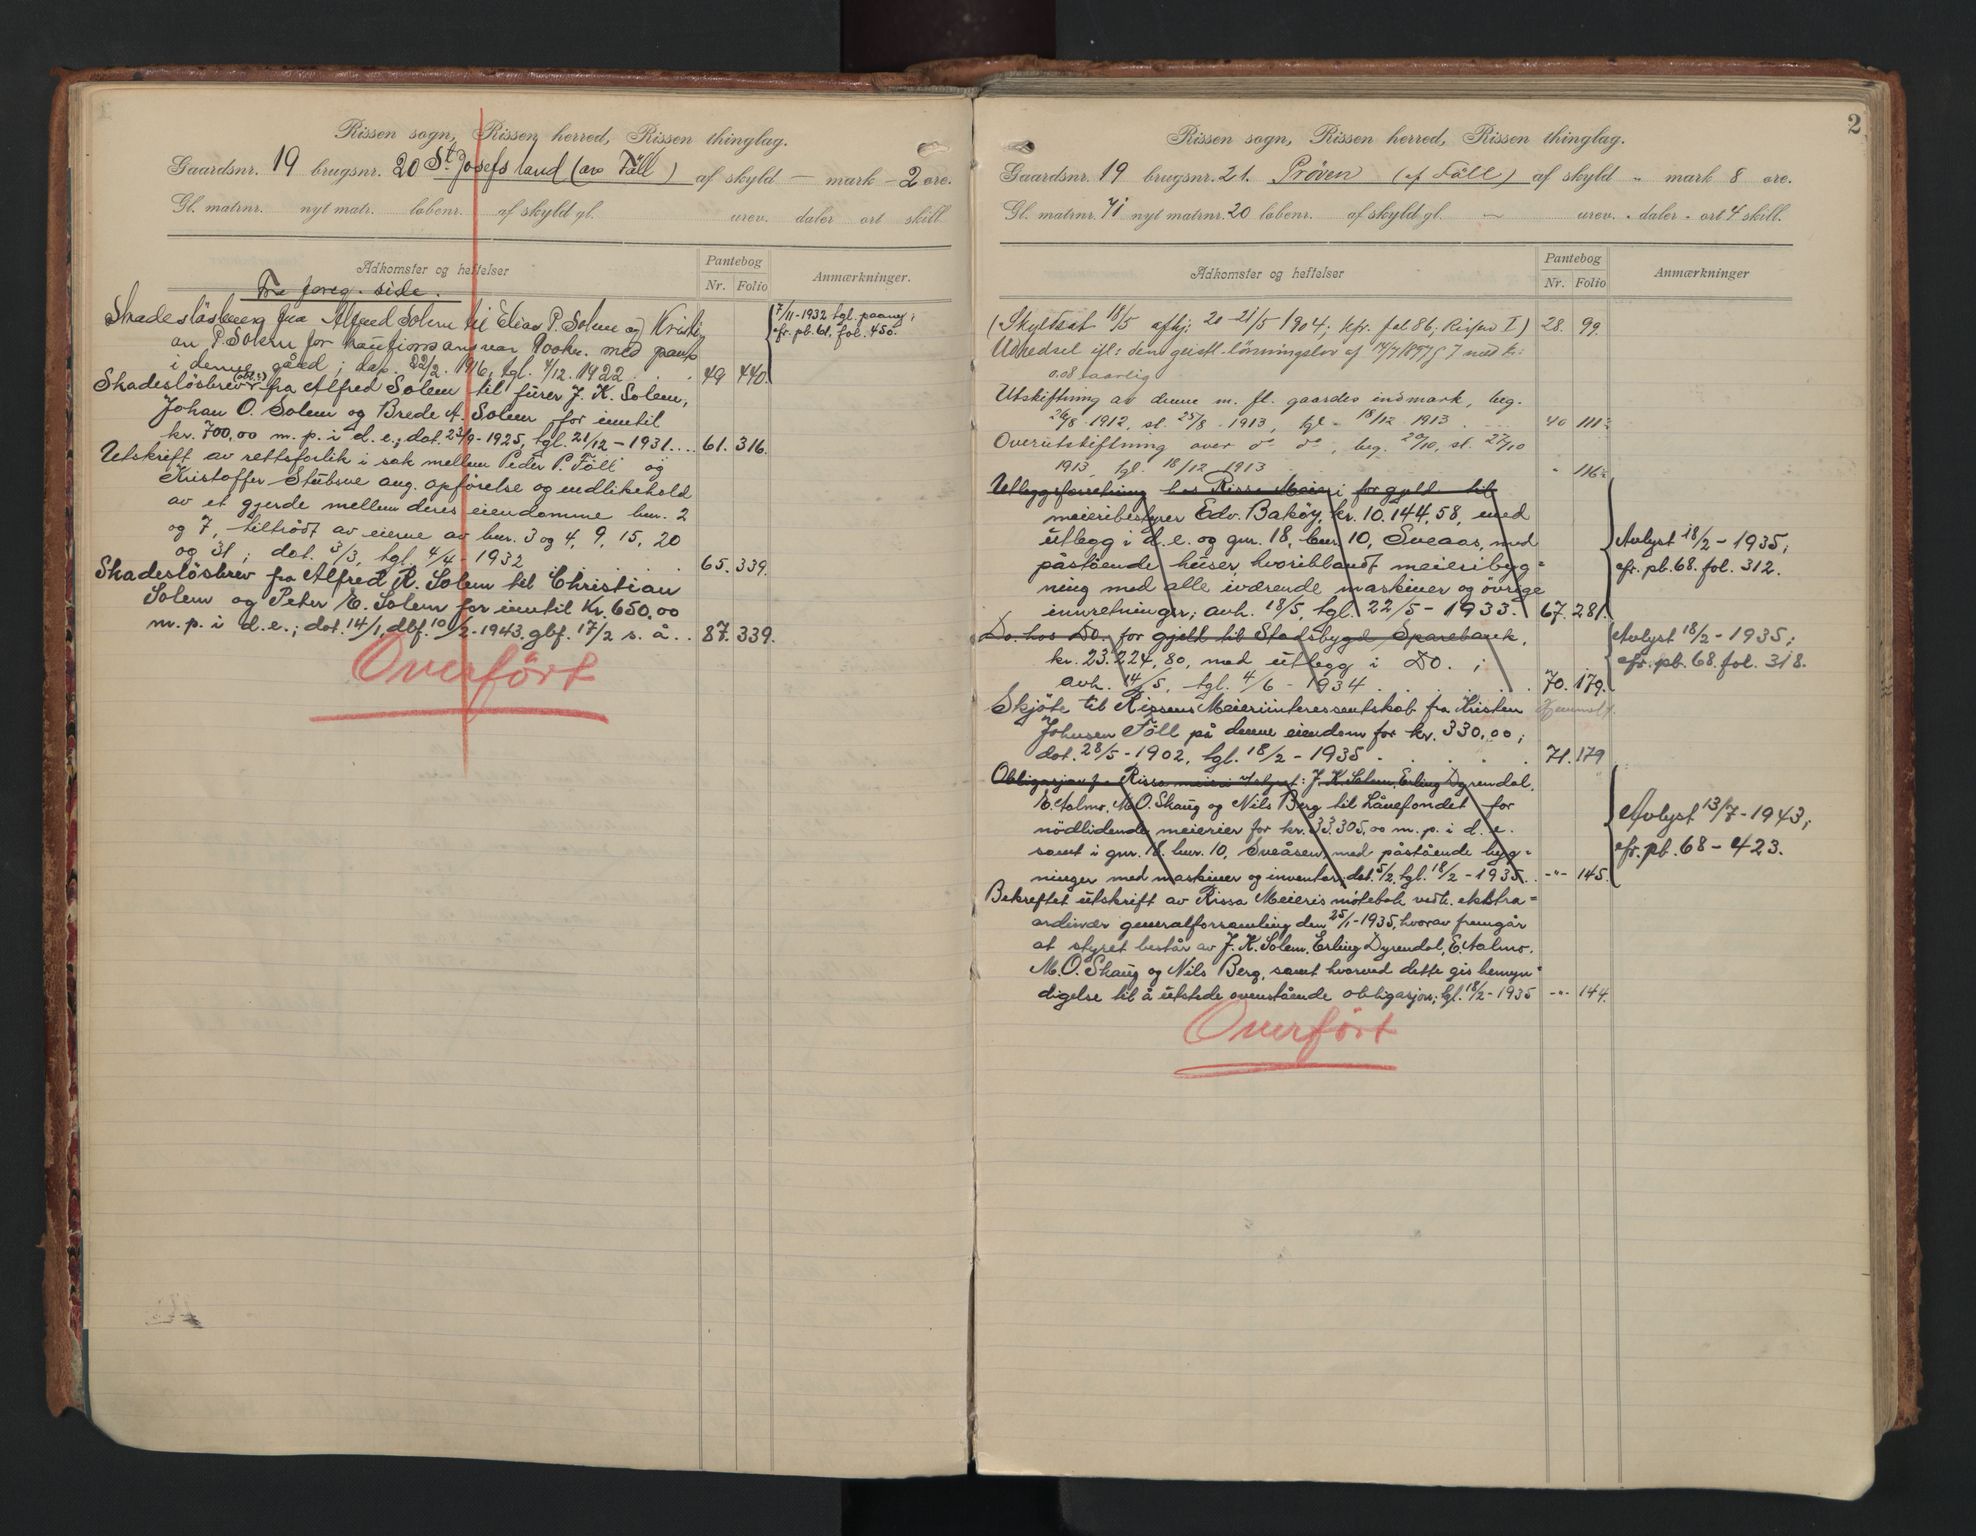 Rissen sogn, Rissen herred, Rissen thinglag.
Gaardsnr. 19 brugsnr. 20 St. Josefs land (av Föll) af skyld — mark - 2 øre.
Gl. matrnr. nyt matr. løbenr. af skyld gl. urev. daler ort skill.
Adkomster og heftelser
Pantebog
Nr. Folio
Anmærkninger.
Fra foreg. side.
Skadeslösbrev fra Alfred Solem til Elias P. Solem og Kristi-
an P. Solem for kautionsansvar 900 kr. med pant
i denne gård; dat. 22/2. 1916, tgl. 4/12. 1922 49 440
7/11-1932 tgl.
cfr. pb. 61. fol. 450.
Skadeslösbrev (obl.) fra Alfred Solem til furer J. K. Solem,
Johan O. Solem og Brede A. Solem for inntil
kr. 700,00 m. p. i d. e.; dat. 23/9-1925, tgl. 21/12-1931.... 61. 316.
Utskrift av rettsforlik i sak mellem Peder P. Föll og
Kristoffer Stubsve ang. opförelse og vedlikehold
av et gjerde mellem deres eiendomme bnr. 2
og 7, tiltrådt av eierne av bnr. 3 og 4, 9, 15, 20
og 31; dat. 3/3, tgl. 4/4-1932 65. 339.
Skadeslösbrev fra Alfred K. Solem til Christian
Solem og Peter E. Solem for inntil Kr. 650,00
m. p. i d. e.; dat. 14/1, dbf. 10/2-1943. gbf. 17/2 s. å.. 87. 339.
Overført
2
Rissen sogn, Rissen herred, Rissen thinglag.
Gaardsnr. 19 brugsnr. 21. Pröven (af Föll) af skyld " mark 8 øre.
Gl. matrnr. 71 nyt matrnr. 20 løbenr. af skyld gl. — urev. - daler - ort 4 skill.
Adkomster og heftelser
Pantebog
Nr. Folio
Anmærkninger
(Skyldsat 18/5 afhj. 20-21/5 1904; kfr. fol 86; Rissen I) 28. 99.
Udredsel ifl: den geistl. lönningslov af 14/7 1897 § 7 med kr:
0.08 aarlig
Utskiftning av denne m. fl. gaardes indmark, beg.
26/8 1912, sl. 25/8 1913, tgl 18/12 1913 40 111
Overutskiftning over do do, beg. 20/10, sl. 27/10
1913, tgl. 18/12 1913 " 116
Utleggsforretning hos Rissa Meieri for gjeld til
meieribestyrer Edv. Baköy, kr. 10.144,58, med
utlegg i d. e. og gnr. 18, bnr 10, Sveaas, med
påstående huser, hvoriblandt meieribyg=
ning med alle iværende maskiner og övrige
innretninger; avh. 18/5, tgl. 22/5-1933. 67. 281.
Avlyst 18/2-1935;
cfr. pb. 68. fol. 312.
Do. hos Do. for gjeld til Stadsbygd Sparebank,
kr. 23.224,80, med utlegg i Do. ;
avh. 14/5, tgl. 4/6-1934 70. 179.
Avlyst 18/2-1935;
cfr. pb. 68. fol. 318.
Skjöte til Rissens Meieriinteressentskab fra Kristen
Johnsen Föll på denne eiendom for kr. 330,00;
dat. 28/5-1902, tgl. 18/2-1935 71. 179
Obligasjon fra Rissa meieri v/styret: J. K. Solem, Erling Dyrendal,
E. Aalmo, M. O. Skaug og Nils Berg til Lånefondet for
nödlidende meierier for kr. 33.305,00 m. p. i d. e.
samt i gnr. 18. bnr. 10, Sveåsen, med påstående byg=
ninger med maskiner og inventar; dat. 5/2, tgl. 18/2-1935. -"- 145.
Avlyst 13/7-1943;
cfr. pb. 68-423.
Bekreftet utskrift av Rissa Meieris mötebok vedk. ekstra=
ordinær generalforsamling den 25/1-1935, hvorav fremgår
at styret består av J. K. Solem, Erling Dyrendal, E. Aalmo,
M. O. Skaug og Nils Berg, samt hvorved dette gis bemyn=
digelse til å utstede ovenstående obligasjon; tgl. 18/2-1935 -"- 144.
Overført